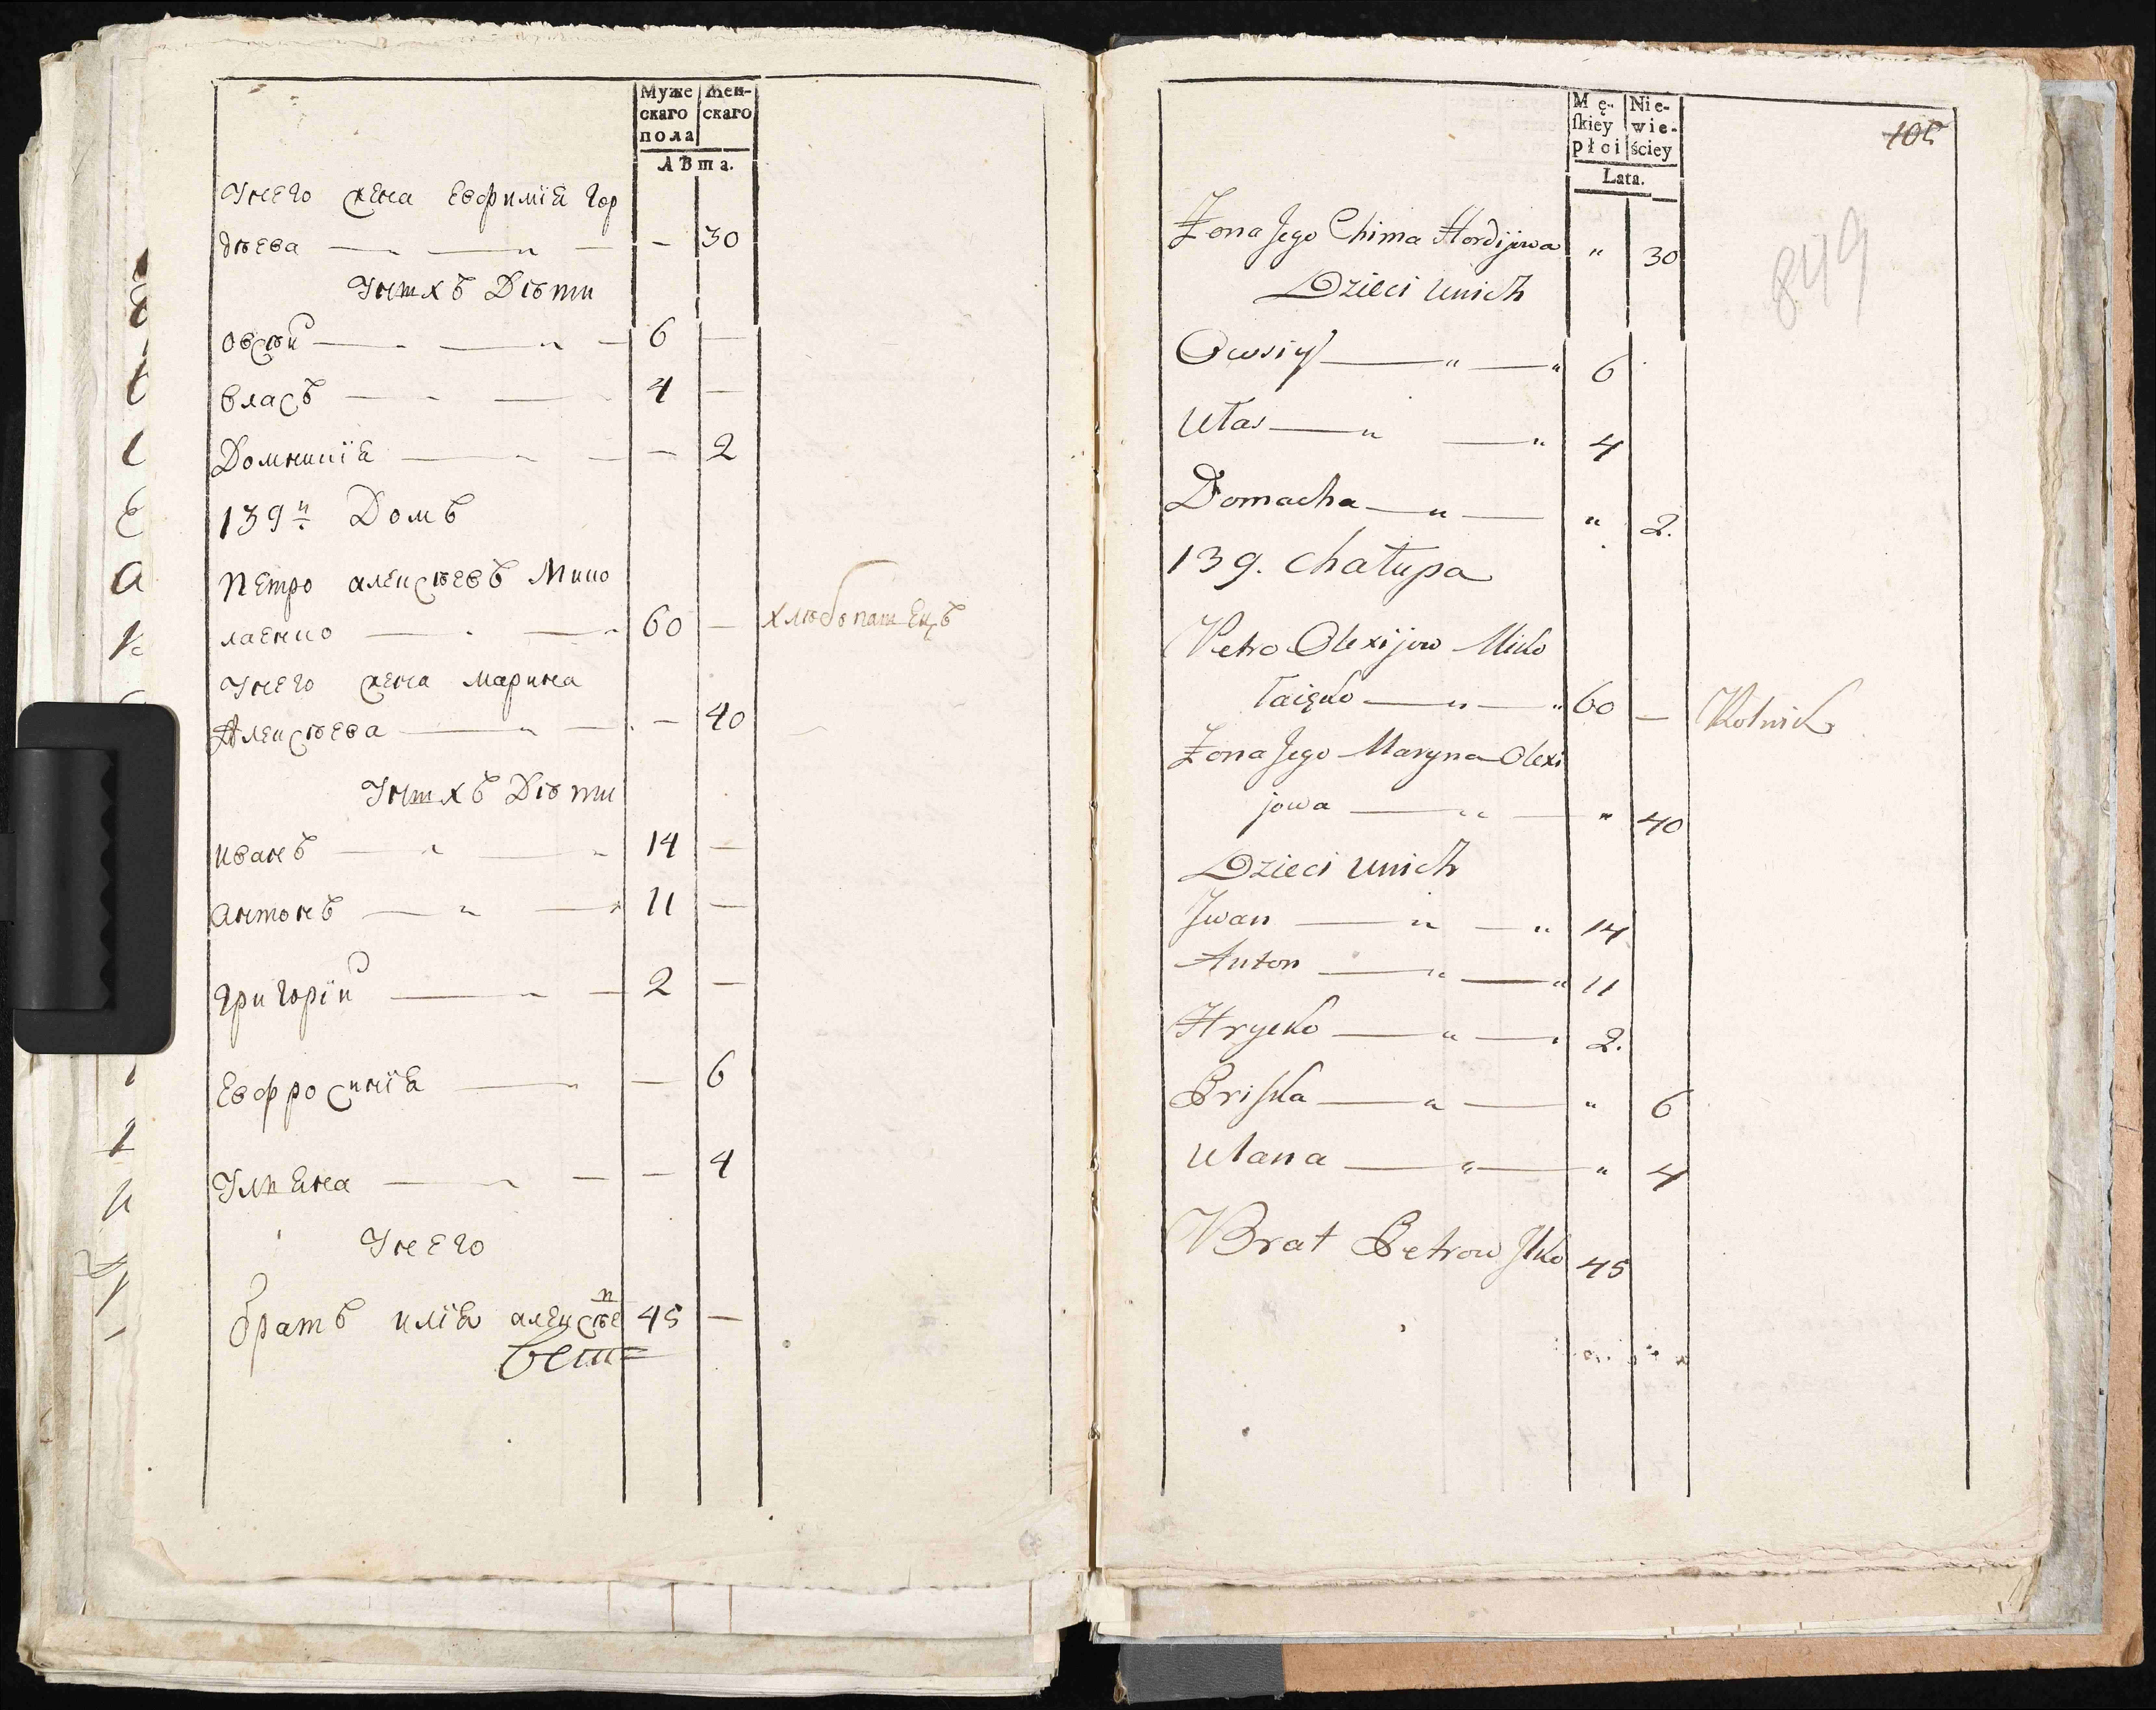 Муже Жен-
скаго скаго
пола
Лѣта.
Унего жена Евфимія Гор
дѣева — — — 30
Унихъ Дѣти
Овсѣй — — 6 —
власъ — — 4 —
Домникія — — — 2
139й Домъ
Петро алексѣевъ Мико
лаенко — — 60 — хлѣбопашецъ
Унего жена марина
Алексѣева — — — 40
Унихъ Дѣти
иванъ — — 14 —
антонъ — — 11 —
григорій — — 2 —
Евфросинія — — — 6
Улияна — — — 4
Унего
братъ илія алексѣе 45 —
въ
Mę- Nie-
ſkiey wie-
płci ściey
Lata.
105
849
Żona Jego Chima Hordijowa " 30
Dzieci unich
Owsiy — " — " 6
Ułas — " — " 4
Domacha — " — " 2.
139. chałupa
Petro Olexijow Miko
łaięko — " — " 60 — Rolnik
Żona Jego Maryna Olexi
jowa — " — " 40
Dzieci unich
Jwan — " — " 14
Anton — " — " 11
Hrycko — " — " 2.
Priſka — " — " 6
Ulana — " — " 4
Brat Petrow Jlko 45